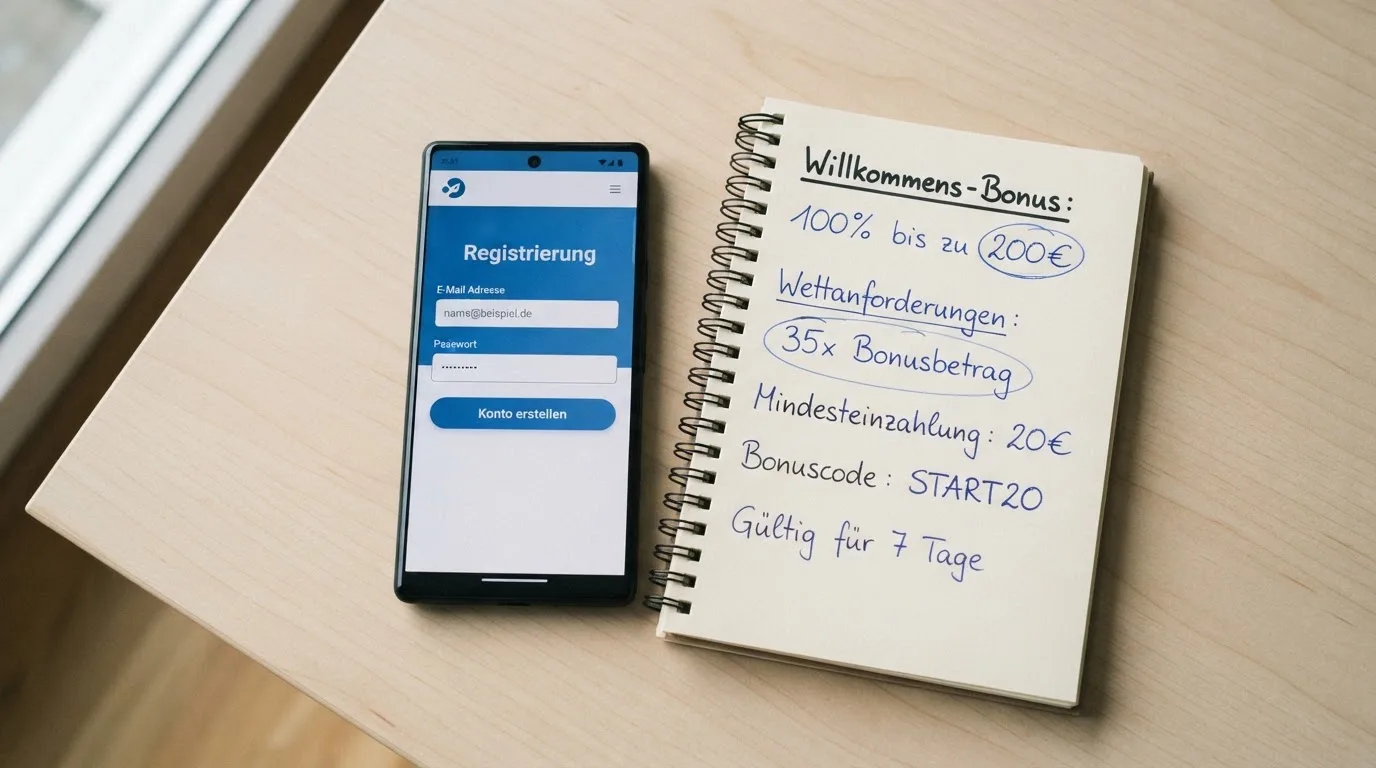 Registrierung
E-Mail Adresse
nams@beispiel.de
Pesewort
Konto erstellen
Willkommens-Bonus:
100% bis zu 200€
Wettanforderungen:
35x Bonusbetrag
Mindesteinzahlung: 20€
Bonuscode: START20
Gültig für 7 Tage